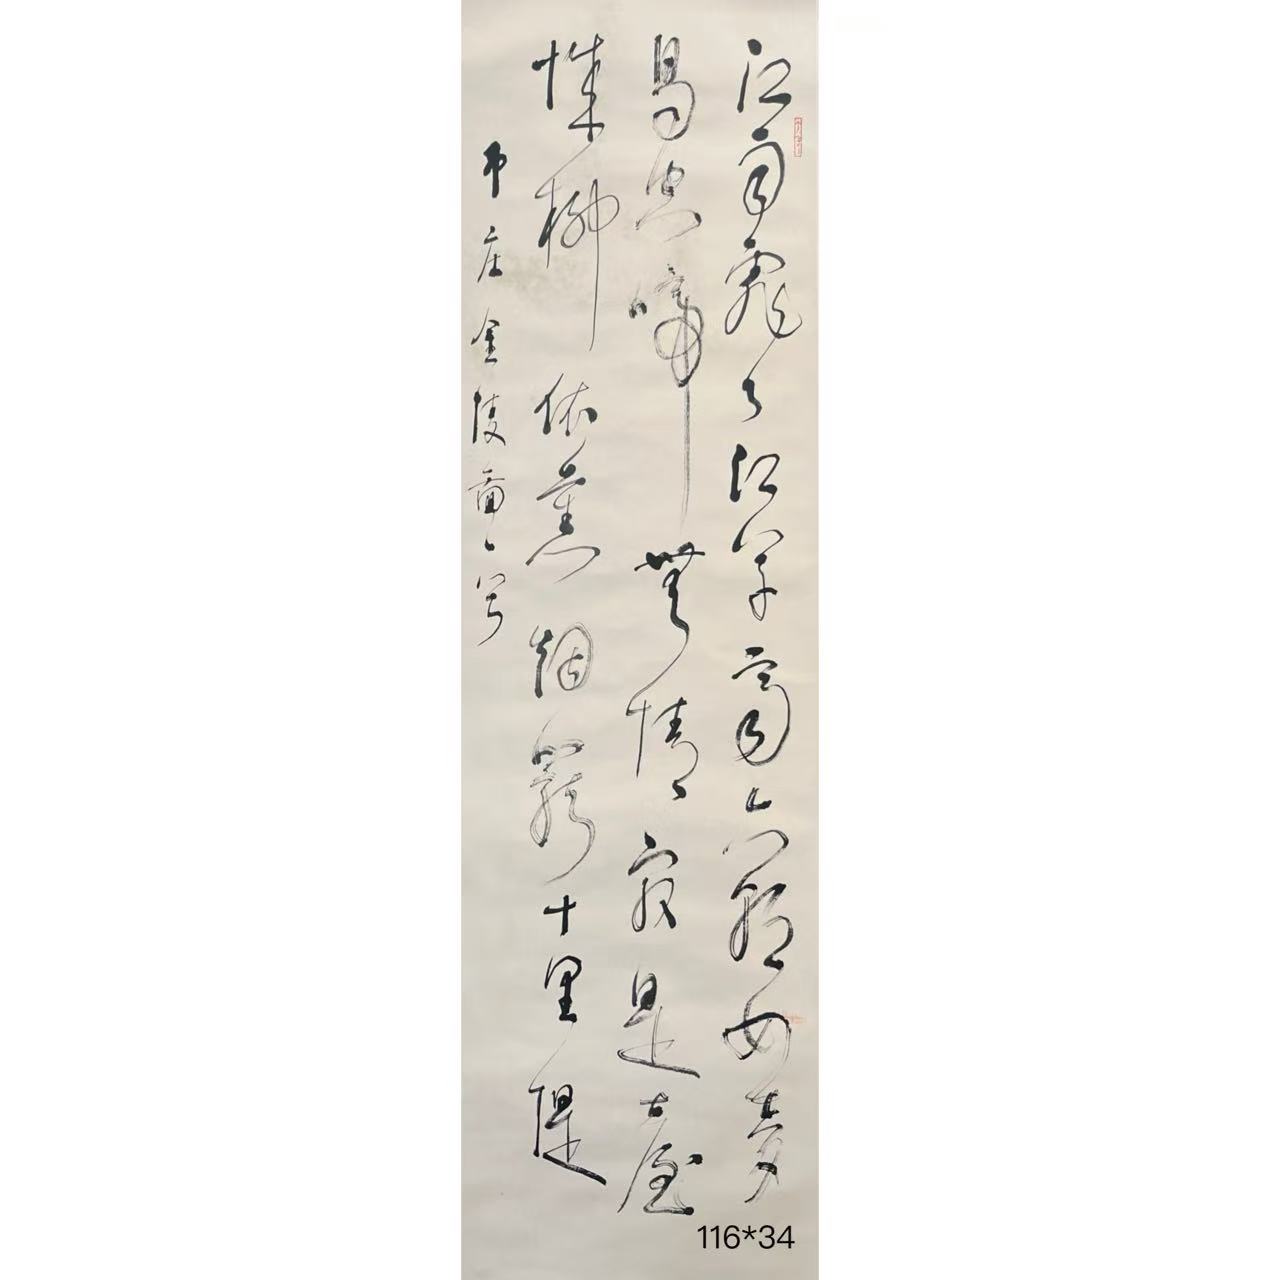 江雨霏々江草齊六朝如夢
鳥空啼無情冣是臺
城柳依舊烟籠十里堤
韦庄金陵啚
116*34